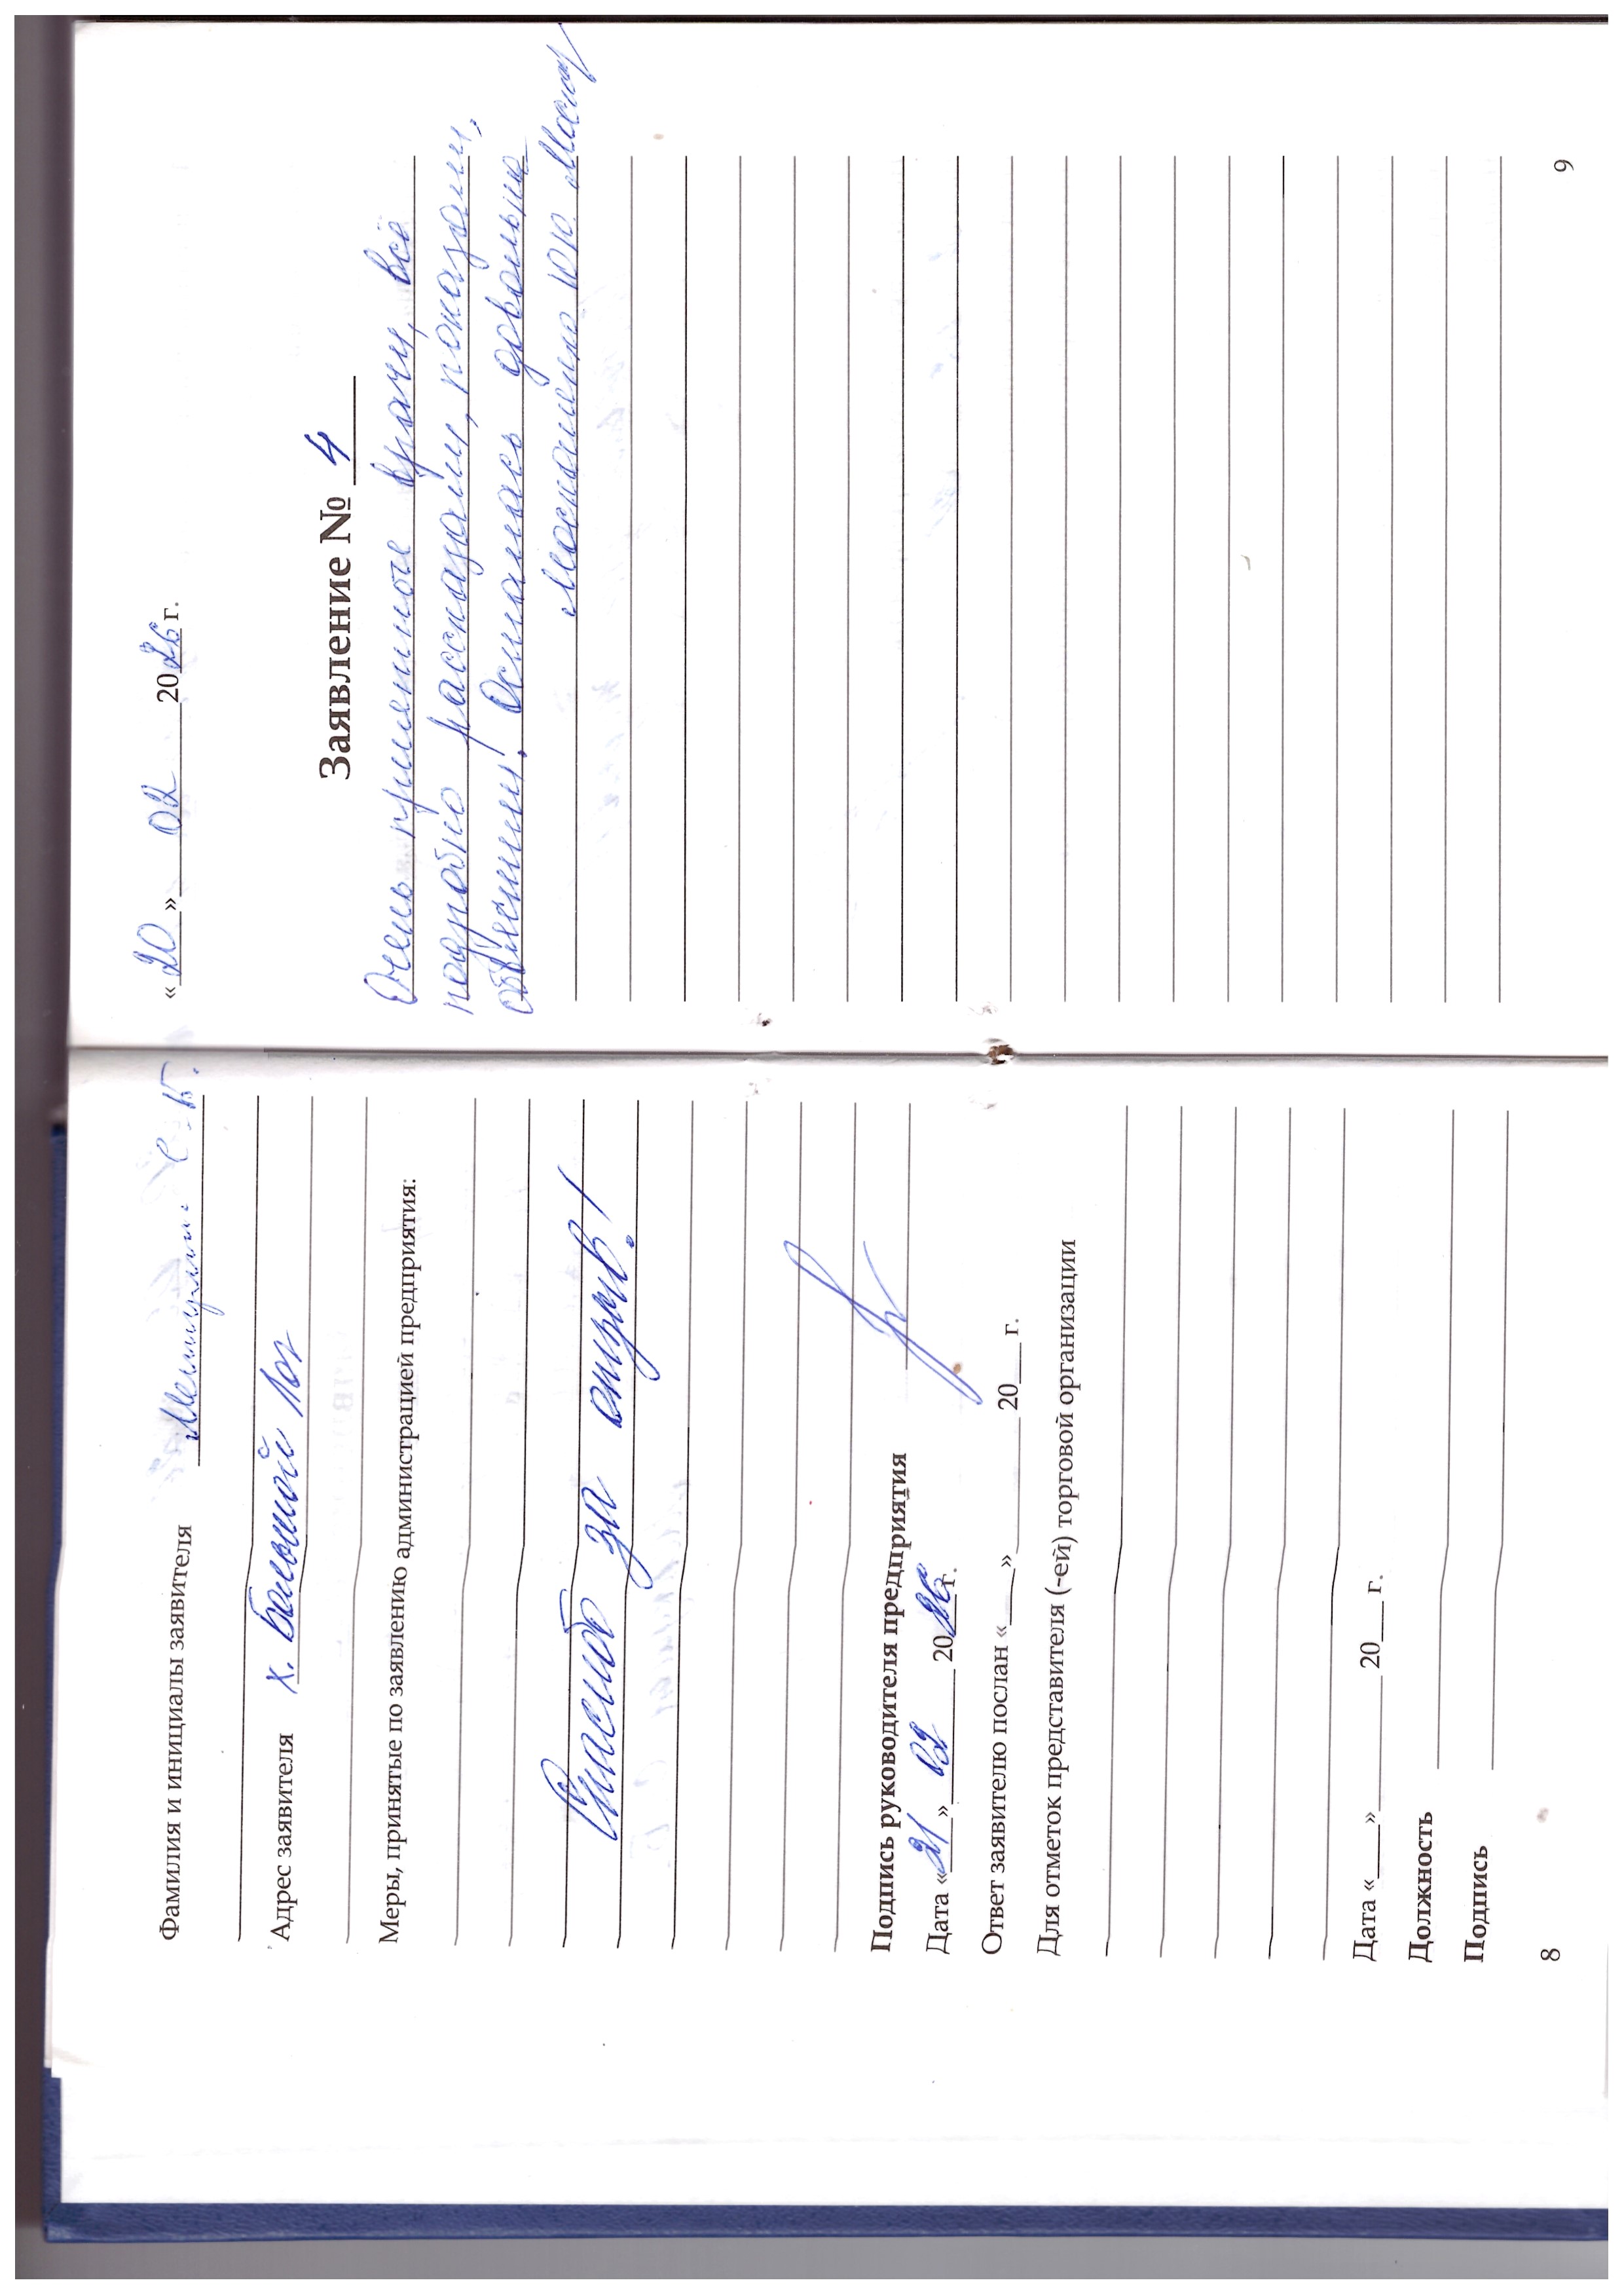 Фамилия и инициалы заявителя
Адрес заявителя х. Большой Лог
Меры, принятые по заявлению администрацией предприятия:
Спасибо за отзыв!
Подпись руководителя предприятия
Дата «21» 02 2026 г.
Ответ заявителю послан «___» ________ 20___ г.
Для отметок представителя (-ей) торговой организации
Дата «___» ________ 20___ г.
Должность
Подпись
8
«20» 02 2026 г.
Заявление № 4
Очень приятные врачи, всё
подробно рассказали, показали,
объяснили! Осталась довольна
9